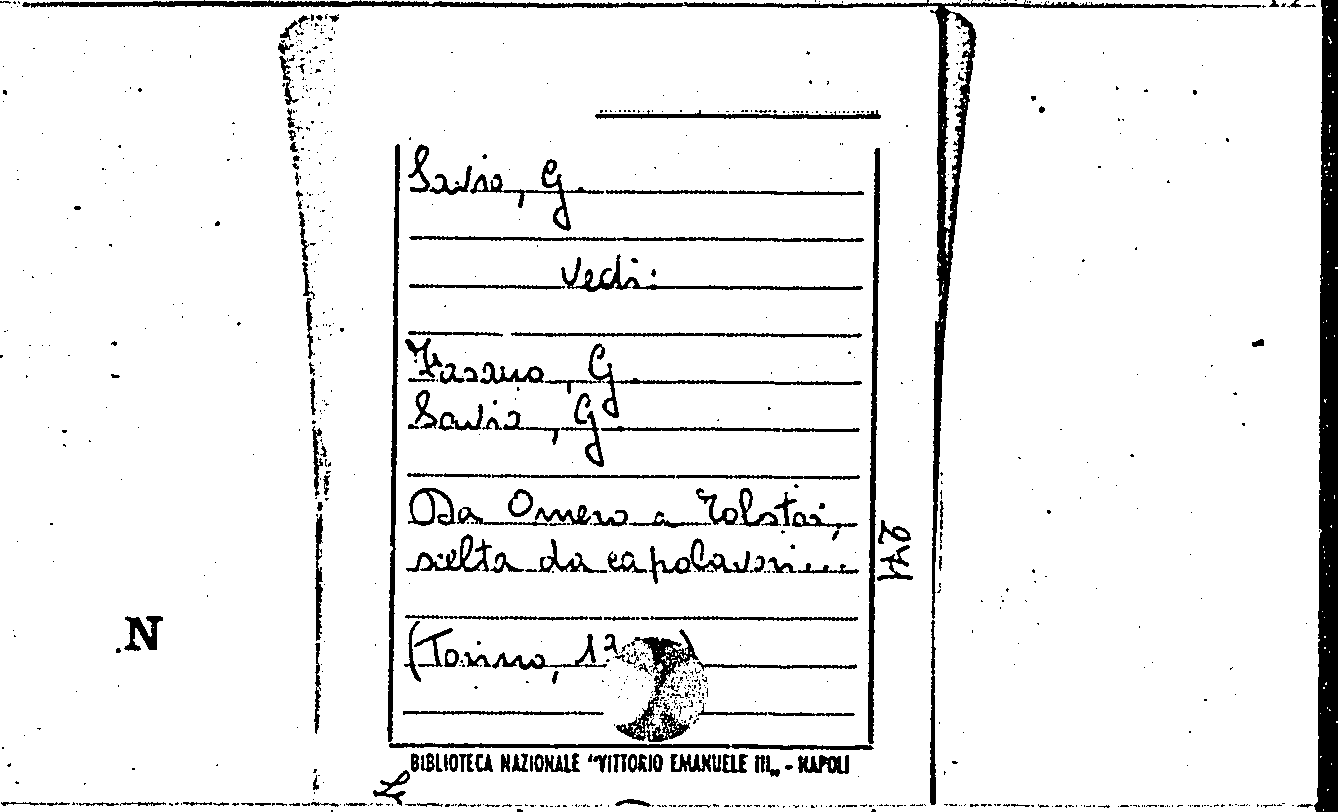 Savio, G.
Vedi:
Fasano, G.
Savio, G.
Da Omero a Tolstoi,
scelta da capolavori...
271
(Torino, 19 )
N
BIBLIOTECA NAZIONALE "VITTORIO EMANUELE III„ - NAPOLI